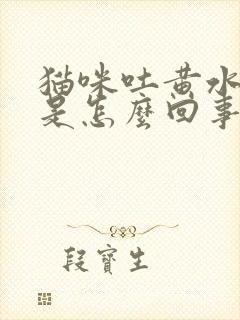 猫咪吐黄水
是怎麼回事
段寶生